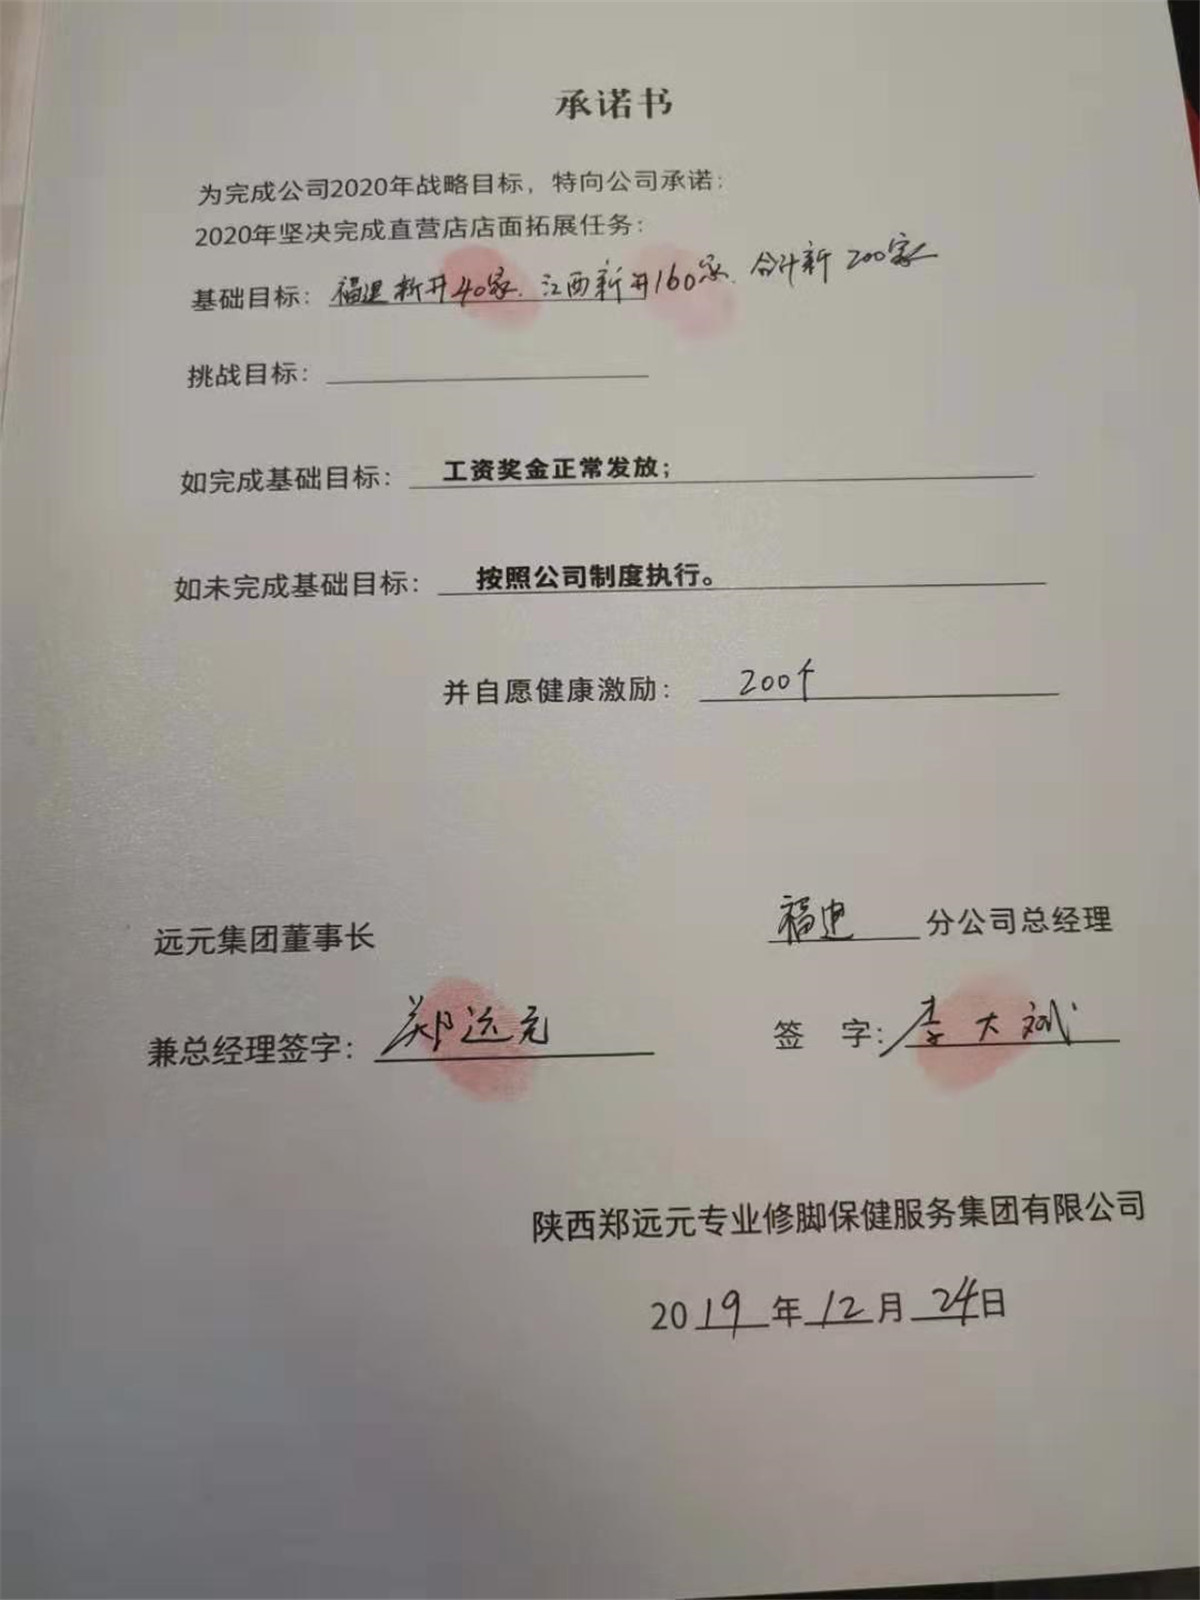 承诺书
为完成公司2020年战略目标，特向公司承诺：
2020年坚决完成直营店店面拓展任务：
基础目标：福建新开40家、江西新开160家、合计新200家
挑战目标：
如完成基础目标：工资奖金正常发放；
如未完成基础目标：按照公司制度执行。
并自愿健康激励：200个
远元集团董事长
福建分公司总经理
兼总经理签字：郑远元
签 字：李大斌
陕西郑远元专业修脚保健服务集团有限公司
2019年12月24日